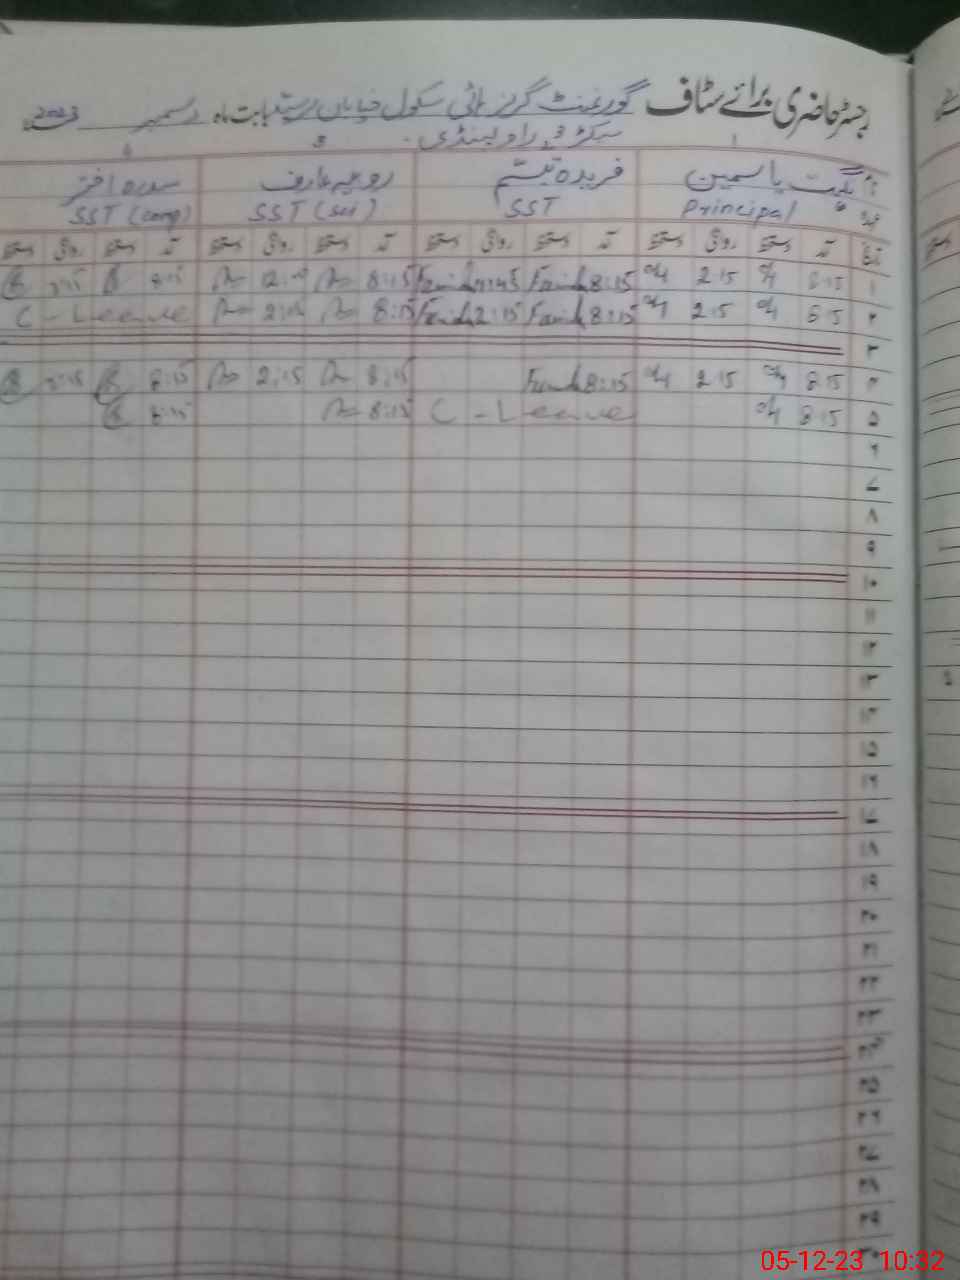 رجسٹر حاضری برائے سٹاف گورنمنٹ گرلز ہائی سکول خیابان سرسید بابت ماہ دسمبر 2023
سیکٹر 3 راولپنڈی۔
نام یاسمین فریدہ تبسم روبینہ عارف سدرہ اختر
عہدہ Principal SST SST (sci) SST (comp)
تاریخ آمد دستخط روانگی دستخط آمد دستخط روانگی دستخط آمد دستخط روانگی دستخط آمد دستخط روانگی دستخط
۱ 8:15 2:15 8:15 Farida 11:45 Farida 8:15 12:00 8:15 2:15
۲ 8:15 2:15 8:15 Farida 2:15 Farida 8:15 2:15 C - Leave
۳
۴ 8:15 2:15 8:15 Farida 8:15 2:15 8:15 2:15
۵ 8:15 C - Leave 8:15 8:15
۶
۷
۸
۹
۱۰
۱۱
۱۲
۱۳
۱۴
۱۵
۱۶
۱۷
۱۸
۱۹
۲۰
۲۱
۲۲
۲۳
۲۴
۲۵
۲۶
۲۷
۲۸
۲۹
۳۰
05-12-23 10:32